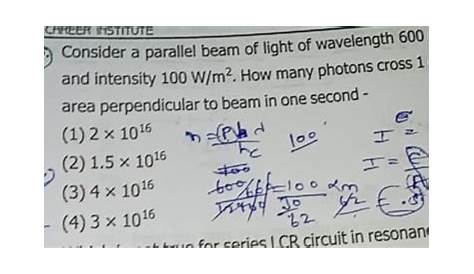 CAREER INSTITUTE
Consider a parallel beam of light of wavelength 600
and intensity 100 W/m². How many photons cross 1
area perpendicular to beam in one second -
(1) 2 × 10¹⁶
(2) 1.5 × 10¹⁶
(3) 4 × 10¹⁶
(4) 3 × 10¹⁶
100
hc
I =
I =
= 100
62
for series LCR circuit in resonan